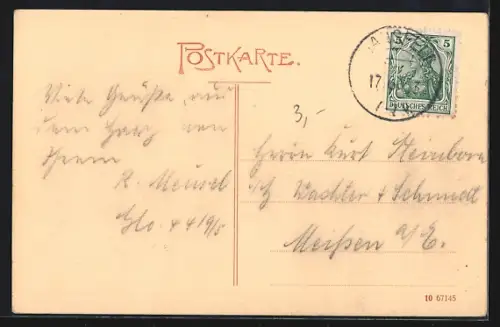 POSTKARTE.
5 5
DEUTSCHES REICH
17.
3,-
Viele Grüße aus
dem Harz von
Ihrem
K. Meusel
Herrn Kurt Steinborn
Wachter & Schmidt
Meißen a/E.
10 67145